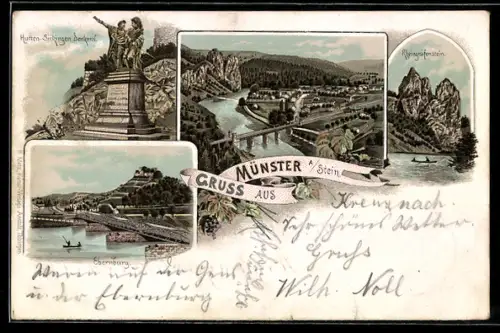 Hutten-Sickingen Denkmal
Rheingrafenstein.
GRUSS AUS
MÜNSTER A/Stein.
Ebernburg
Kreuznach
Sehr schönes Wetter
Gruss
Wilh. Noll
Waren auf der Gans
u. der Ebernburg